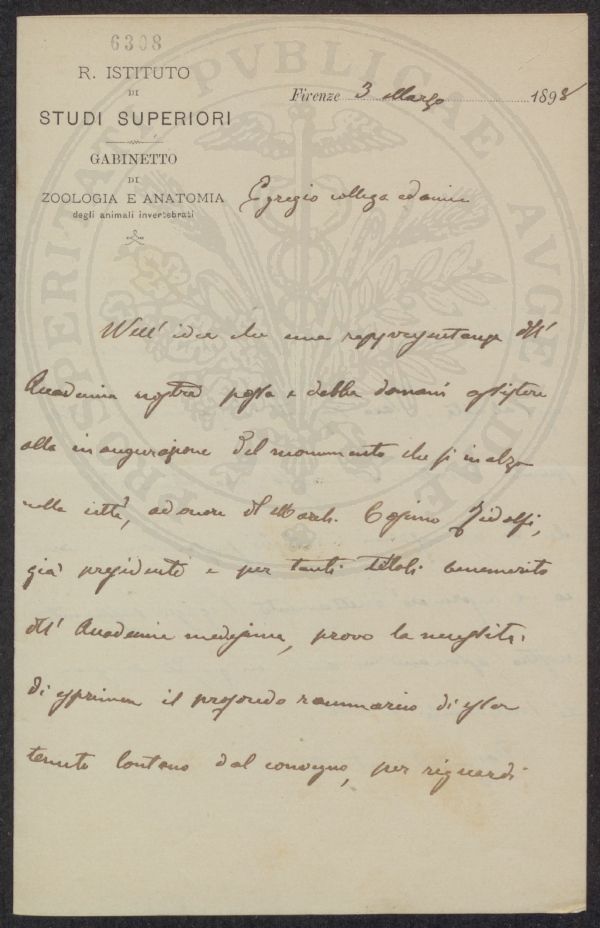 6308
R. ISTITUTO
DI
STUDI SUPERIORI
GABINETTO
DI
ZOOLOGIA E ANATOMIA
degli animali invertebrati
Firenze 3 Marzo 1898
Egregio collega ed amico
Nell' idea che una rappresentanza dell'
Accademia nostra possa e debba domani assistere
alla inaugurazione del monumento che si inalza
nella città, ad onore del March. Cosimo Ridolfi,
già presidente e per tanti titoli benemerito
dell' Accademia medesima, provo la necessità
di esprimere il profondo rammarico di esser
tenuto lontano dal convegno, per riguardi
PROSPERITATI PVBLICAE AVGENDAE